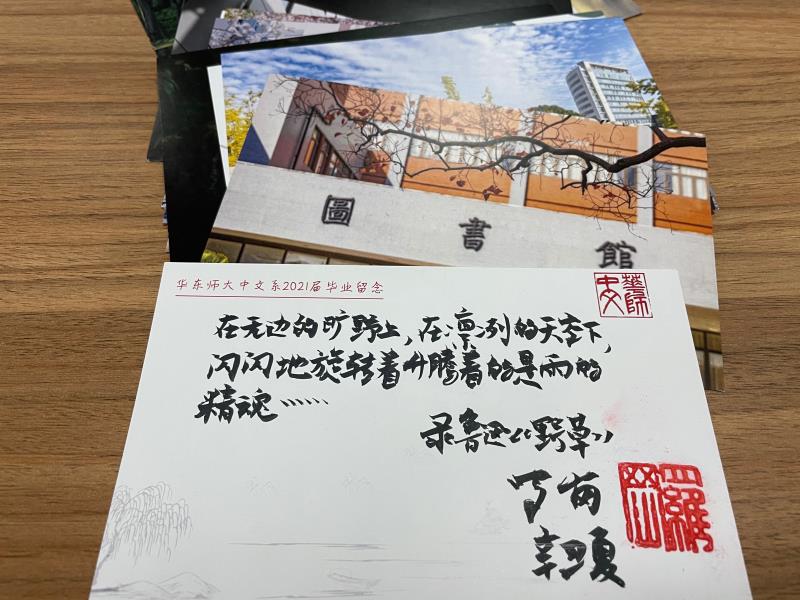 圖書館
华东师大中文系2021届毕业留念
華師中文
在无边的旷野上,在凛冽的天宇下,
闪闪地旋转着升腾着的是雨的
精魂……
录鲁迅《野草》
罗岗
辛丑夏